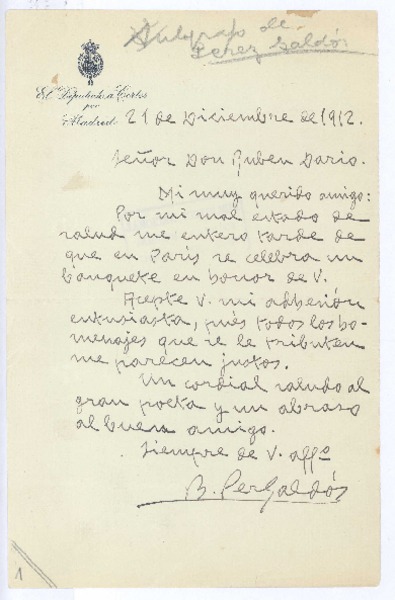 Autógrafo de
Perez Galdós
El Diputado á Cortes
por
Madrid
21 de Diciembre de 1912.
Señor Don Ruben Dario.
Mi muy querido amigo:
Por mi mal estado de
salud me entero tarde de
que en París se celebra un
banquete en honor de V.
Acepte V. mi adhesión
entusiasta, pués todos los ho-
menajes que se le tributen
me parecen justos.
Un cordial saludo al
gran poeta y un abraso
al buen amigo.
Siempre de V. affº
B. Perez Galdós
1